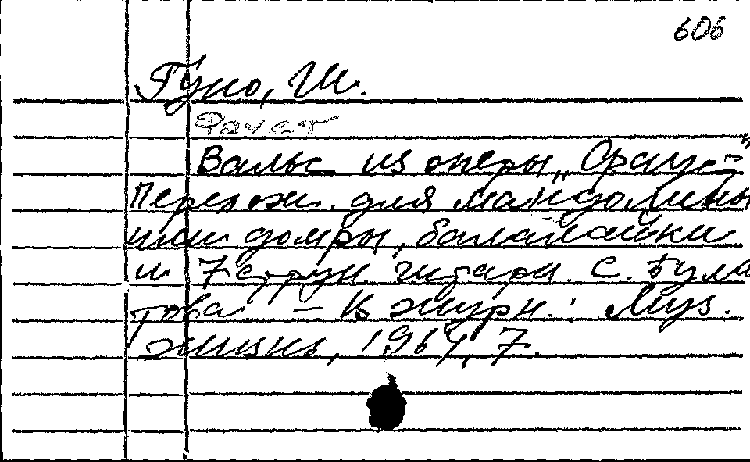 606
Гуно, Ш.
Фауст
Вальс из оперы „Фауст"
Перелож. для мандолины
или домры, балалайки
и 7 струн. гитары С. Була
това. – В журн.: Муз.
жизнь, 1964, 7.